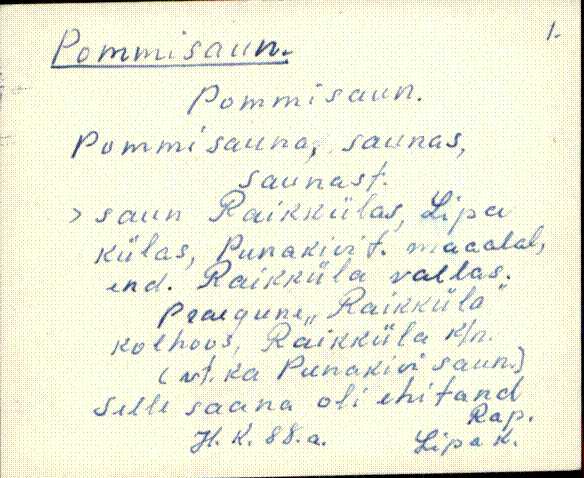 1.
Pommisaun.
Pommisaun.
Pommisauna, saunas,
saunast.
> saun Raikkülas, Lipa
külas, Punakivi t. maaalal,
end. Raikküla vallas.
Praegune „Raikküla"
kolhoos, Raikküla k/n.
(vt. ka Punakivi saun.)
Selle saana oli ehitand
Rap.
H. K. 88. a. Lipa k.